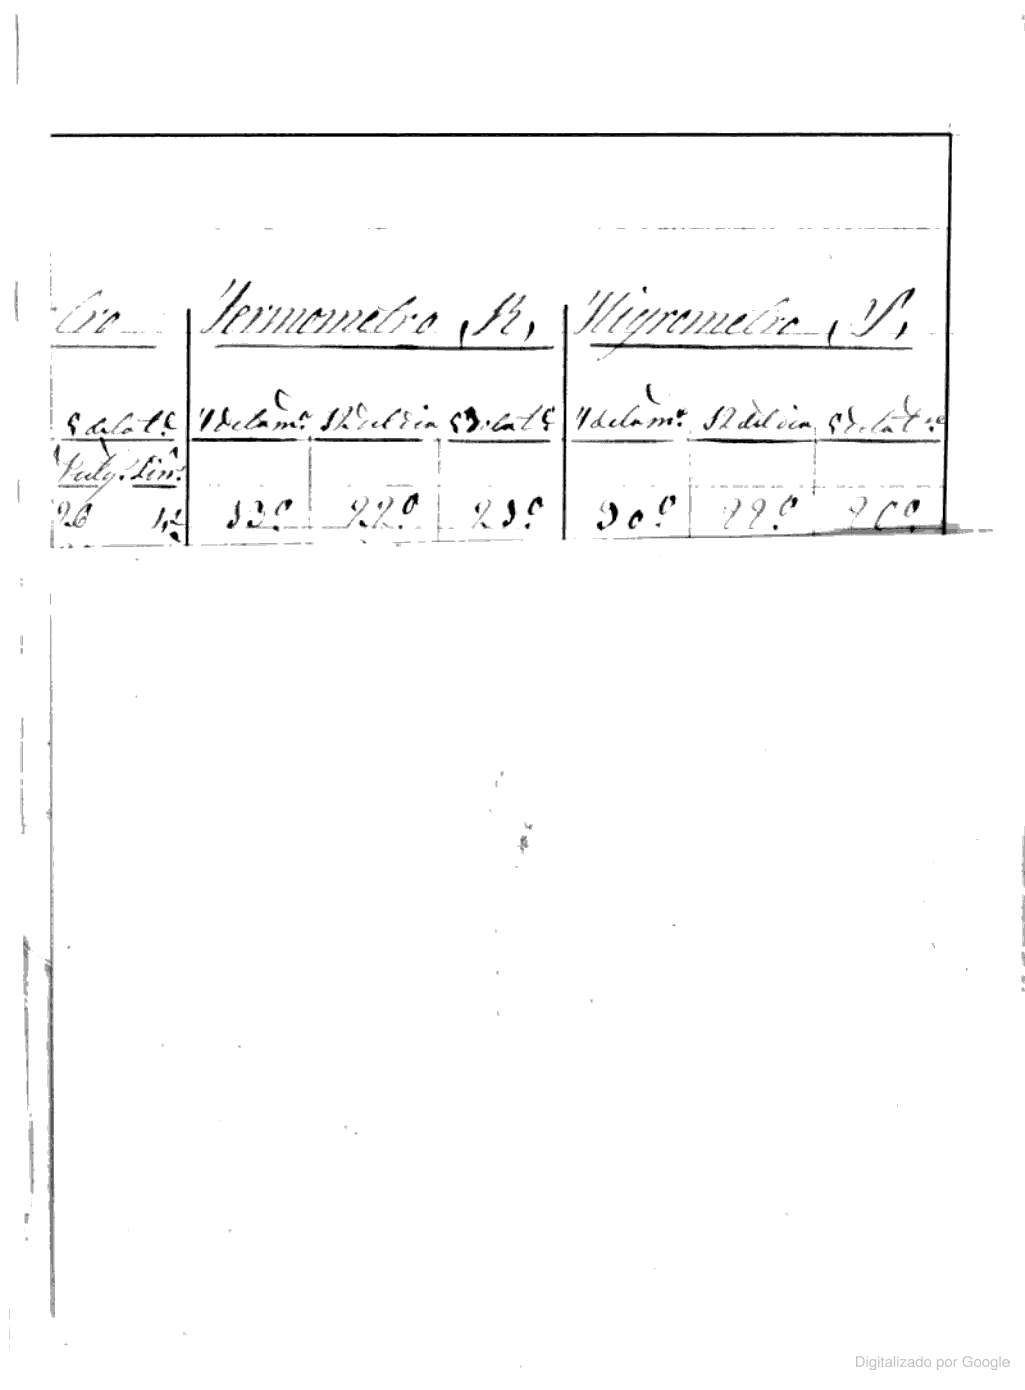 tro Termometro R, Higrometro, S,
5 de la t.e 7 de la m.a 12 del dia 5 de la t.e 7 de la m.a 12 del dia 5 de la t.e
Pulg.s Lin.s
26 13.o 22.o 23.o 90.o
Digitalizado por Google